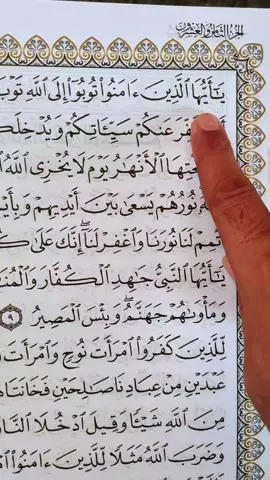 الجُزْءُ الثَّامِنُ وَالْعِشْرُونَ
يَٰٓأَيُّهَا ٱلَّذِينَ ءَامَنُوا۟ تُوبُوٓا۟ إِلَى ٱللَّهِ تَوْبَ
فِّرَ عَنكُمْ سَيِّـَٔاتِكُمْ وَيُدْخِلَكُ
تِهَا ٱلْأَنْهَٰرُ يَوْمَ لَا يُخْزِى ٱللَّهُ ٱ
نُورُهُمْ يَسْعَىٰ بَيْنَ أَيْدِيهِمْ وَبِأَيْ
تْمِمْ لَنَا نُورَنَا وَٱغْفِرْ لَنَآ ۖ إِنَّكَ عَلَىٰ كُ
يَٰٓأَيُّهَا ٱلنَّبِىُّ جَٰهِدِ ٱلْكُفَّارَ وَٱلْمُنَ
وَمَأْوَىٰهُمْ جَهَنَّمُ ۖ وَبِئْسَ ٱلْمَصِيرُ ٩
لِّلَّذِينَ كَفَرُوا۟ ٱمْرَأَتَ نُوحٍ وَٱمْرَأَتَ
عَبْدَيْنِ مِنْ عِبَادِنَا صَٰلِحَيْنِ فَخَانَتَا
مِنَ ٱللَّهِ شَيْـًٔا وَقِيلَ ٱدْخُلَا ٱلنَّا
وَضَرَبَ ٱللَّهُ مَثَلًا لِّلَّذِينَ ءَامَنُوا۟ ٱ